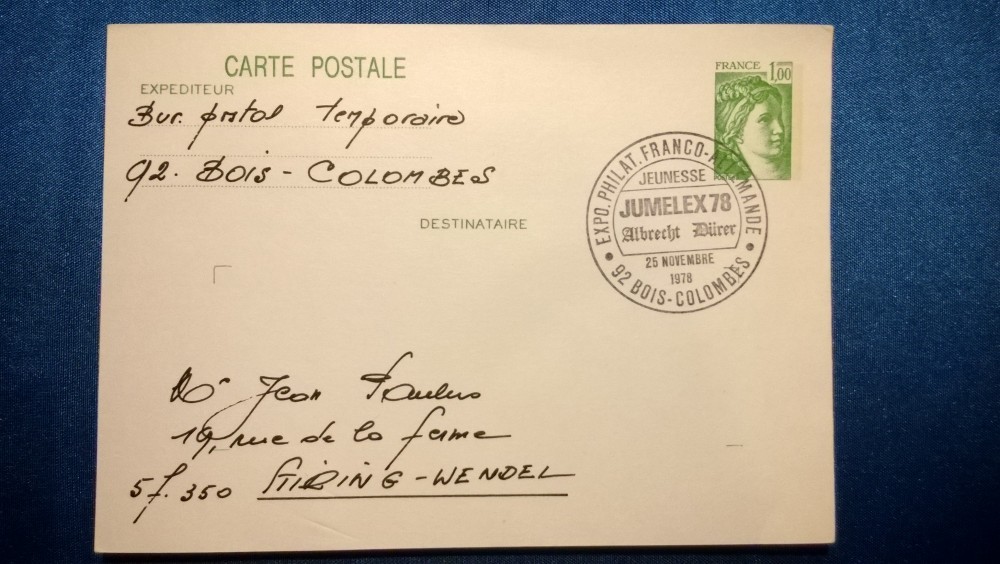 CARTE POSTALE
EXPEDITEUR
Bur. postal temporaire
92. BOIS - COLOMBES
DESTINATAIRE
FRANCE 1,00
EXPO. PHILAT. FRANCO-ALLEMANDE
JEUNESSE
JUMELEX 78
Albrecht Dürer
25 NOVEMBRE
1978
92 BOIS-COLOMBES
Jean Paulus
19, rue de la ferme
57.350 STIRING-WENDEL